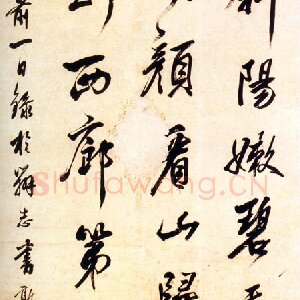 斜陽嫩碧
顏看山歸
西廊第
前一日録於辭志書
ShufaWang.CN